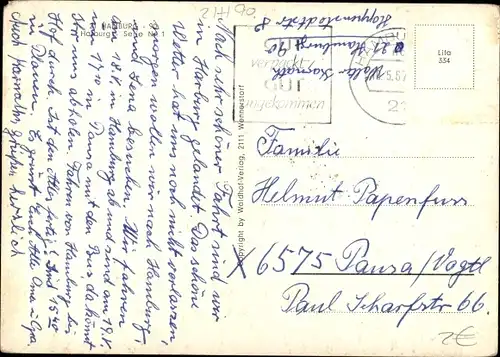 2HH90
2 HAMBURG - 90
Harburg Serie Nr. 1
Nach sehr schöner Fahrt sind wir
in Harburg gelandet. Das schöne
Wetter hat uns noch nicht verlassen,
morgen wollen wir nach Hamburg,
und Lena besuchen. Wir fahren
am 18.8. in Hamburg ab und sind am 19.8.
um 17°° in Pausa mit den Bus, da könnt
Ihr uns abholen. Fahrn von Hamburg bis
Hof durch. Ist der Otler fertig? Sind 15 40
in Plauen. Es grüßt Euch Alle Oma u Opa.
Auch Karnaths grüßen herzlich
Copyright by Waldhof-Verlag, 2111 Wennerstorf
gut
verpackt
GUT
angekommen
21
Walter Karnath
21 Hamburg 90
Hoppenstedtstr 8
Lita
334
Familie
Helmut Papenfuss
X 6575 Pausa/Vogtl
Paul Scharfstr 66.
2€